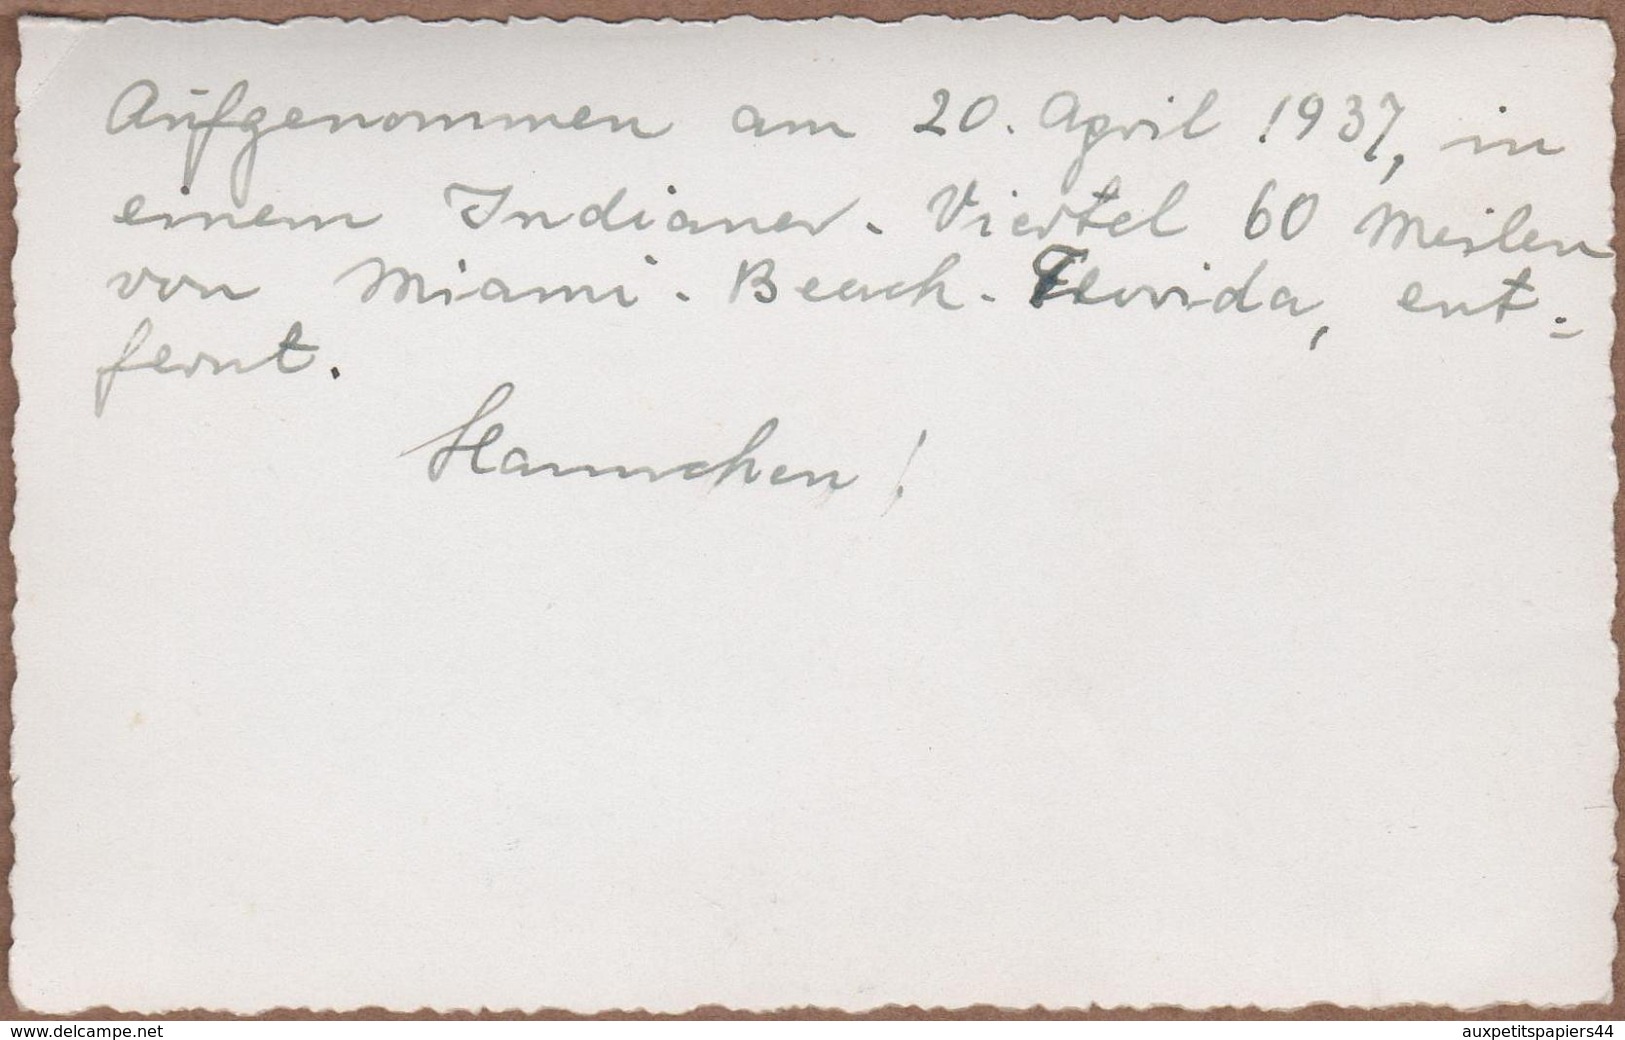 Aufgenommen am 20. April 1937, in
einem Indianer-Viertel 60 Meilen
von Miami-Beach-Florida, ent-
fernt.
Hannchen!
www.delcampe.net
auxpetitspapiers44